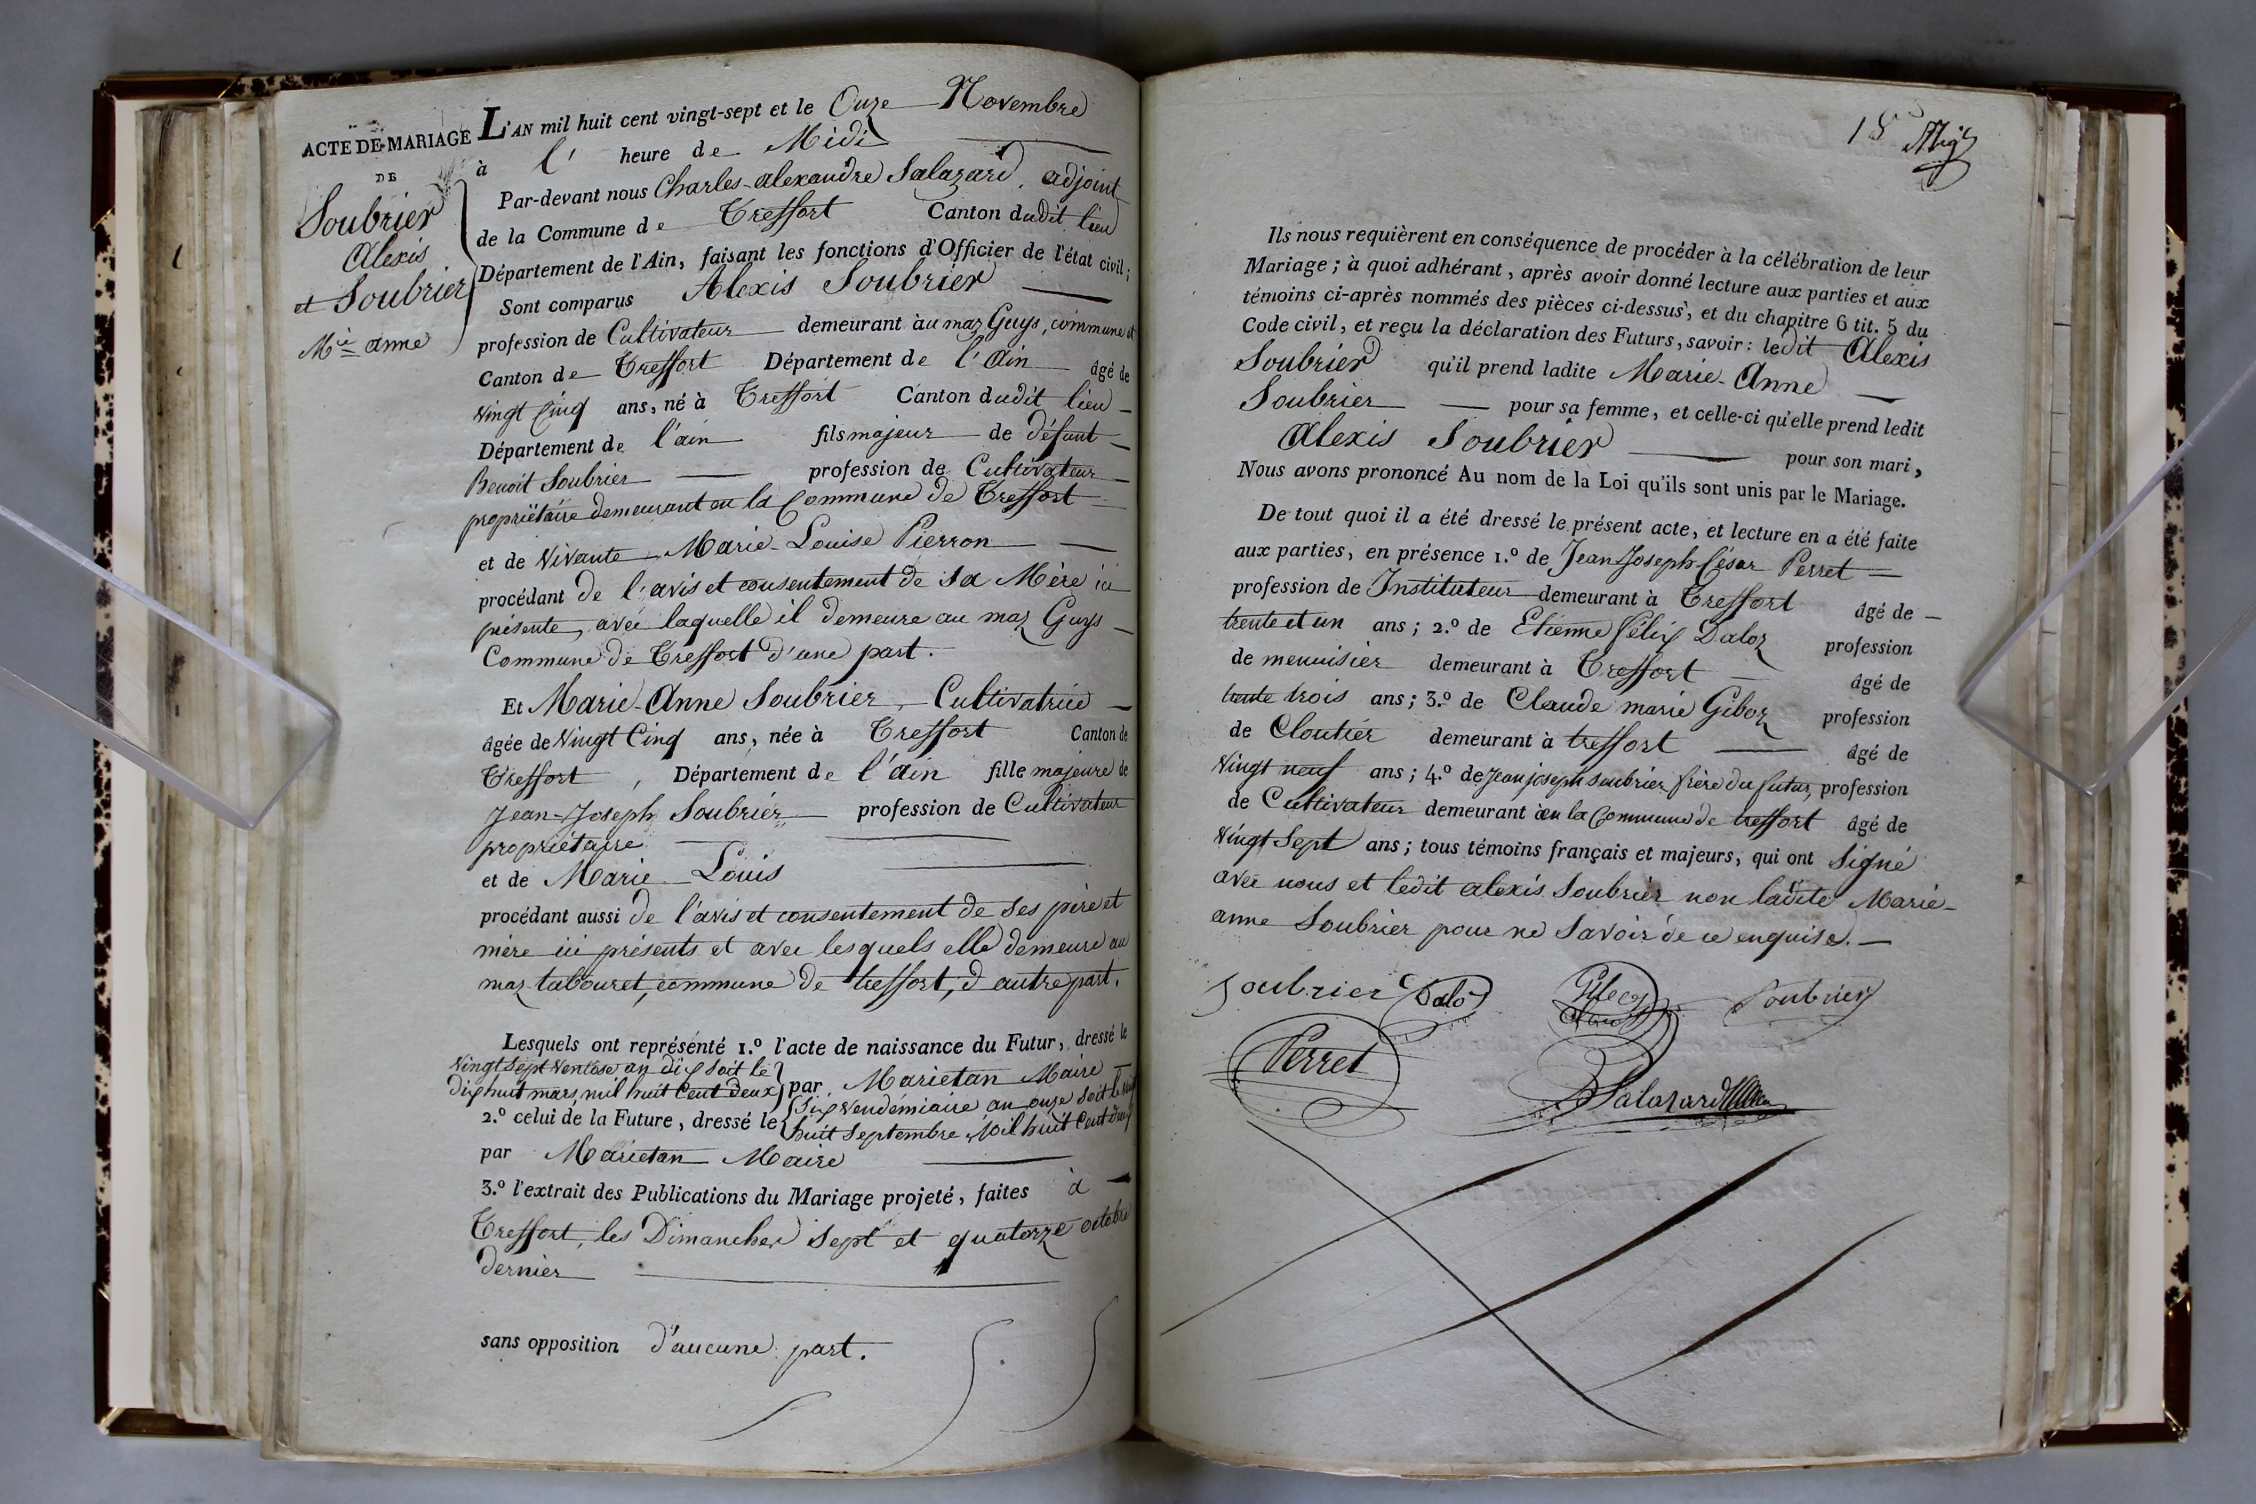 ACTE DE MARIAGE
DE
Soubrier
Alexis
et Soubrier
M.ie anne
L'AN mil huit cent vingt-sept et le Onze Novembre
à l' heure de Midi
Par-devant nous Charles-alexandre Salazard, adjoint
de la Commune de Treffort Canton dudit lieu
Département de l'Ain, faisant les fonctions d'Officier de l'état civil;
Sont comparus Alexis Soubrier
profession de Cultivateur demeurant au maz Guys, commune et
Canton de Treffort Département de l'Ain âgé de
Vingt Cinq ans, né à Treffort Canton dudit lieu
Département de l'ain fils majeur de défunt
Benoit Soubrier profession de Cultivateur
propriétaire demeurant en la Commune de Treffort
et de Vivante Marie-Louise Pierron
procédant de l'avis et consentement de sa Mère ici
présente, avec laquelle il demeure au maz Guys
Commune de Treffort d'une part.
Et Marie-Anne Soubrier, Cultivatrice
âgée de Vingt Cinq ans, née à Treffort Canton de
Treffort, Département de l'ain fille majeure de
Jean-Joseph Soubrier profession de Cultivateur
propriétaire
et de Marie Louis
procédant aussi de l'avis et consentement de ses père et
mère ici présents et avec lesquels elle demeure au
maz tabouret, commune de treffort, d'autre part.
Lesquels ont représenté 1.º l'acte de naissance du Futur, dressé le
Vingt Sept Ventose an dix soit le
dix huit mars, mil huit Cent deux par Marietan Maire
2.º celui de la Future, dressé le Six Vendémiaire an onze soit le vingt
huit Septembre Mil huit Cent deux
par Marietan Maire
3.º l'extrait des Publications du Mariage projeté, faites à
Treffort, les Dimanches Sept et quatorze octobre
dernier
sans opposition d'aucune part.
18
Ils nous requièrent en conséquence de procéder à la célébration de leur
Mariage; à quoi adhérant, après avoir donné lecture aux parties et aux
témoins ci-après nommés des pièces ci-dessus, et du chapitre 6 tit. 5 du
Code civil, et reçu la déclaration des Futurs, savoir: ledit Alexis
Soubrier qu'il prend ladite Marie-Anne
Soubrier pour sa femme, et celle-ci qu'elle prend ledit
Alexis Soubrier pour son mari,
Nous avons prononcé Au nom de la Loi qu'ils sont unis par le Mariage.
De tout quoi il a été dressé le présent acte, et lecture en a été faite
aux parties, en présence 1.º de Jean Joseph César Perret
profession de Instituteur demeurant à Treffort âgé de
trente et un ans; 2.º de Etienne félix Daloz profession
de menuisier demeurant à Treffort âgé de
trente trois ans; 3.º de Claude marie Giboz profession
de Cloutier demeurant à treffort âgé de
Vingt neuf ans; 4.º de Jean joseph soubrier frère du futur, profession
de Cultivateur demeurant à en la Commune de treffort âgé de
Vingt Sept ans; tous témoins français et majeurs, qui ont Signé
avec nous et ledit alexis Soubrier non ladite Marie-
anne Soubrier pour ne Savoir de ce enquise.
Soubrier Dalo Soubrier
Perret
Salazard